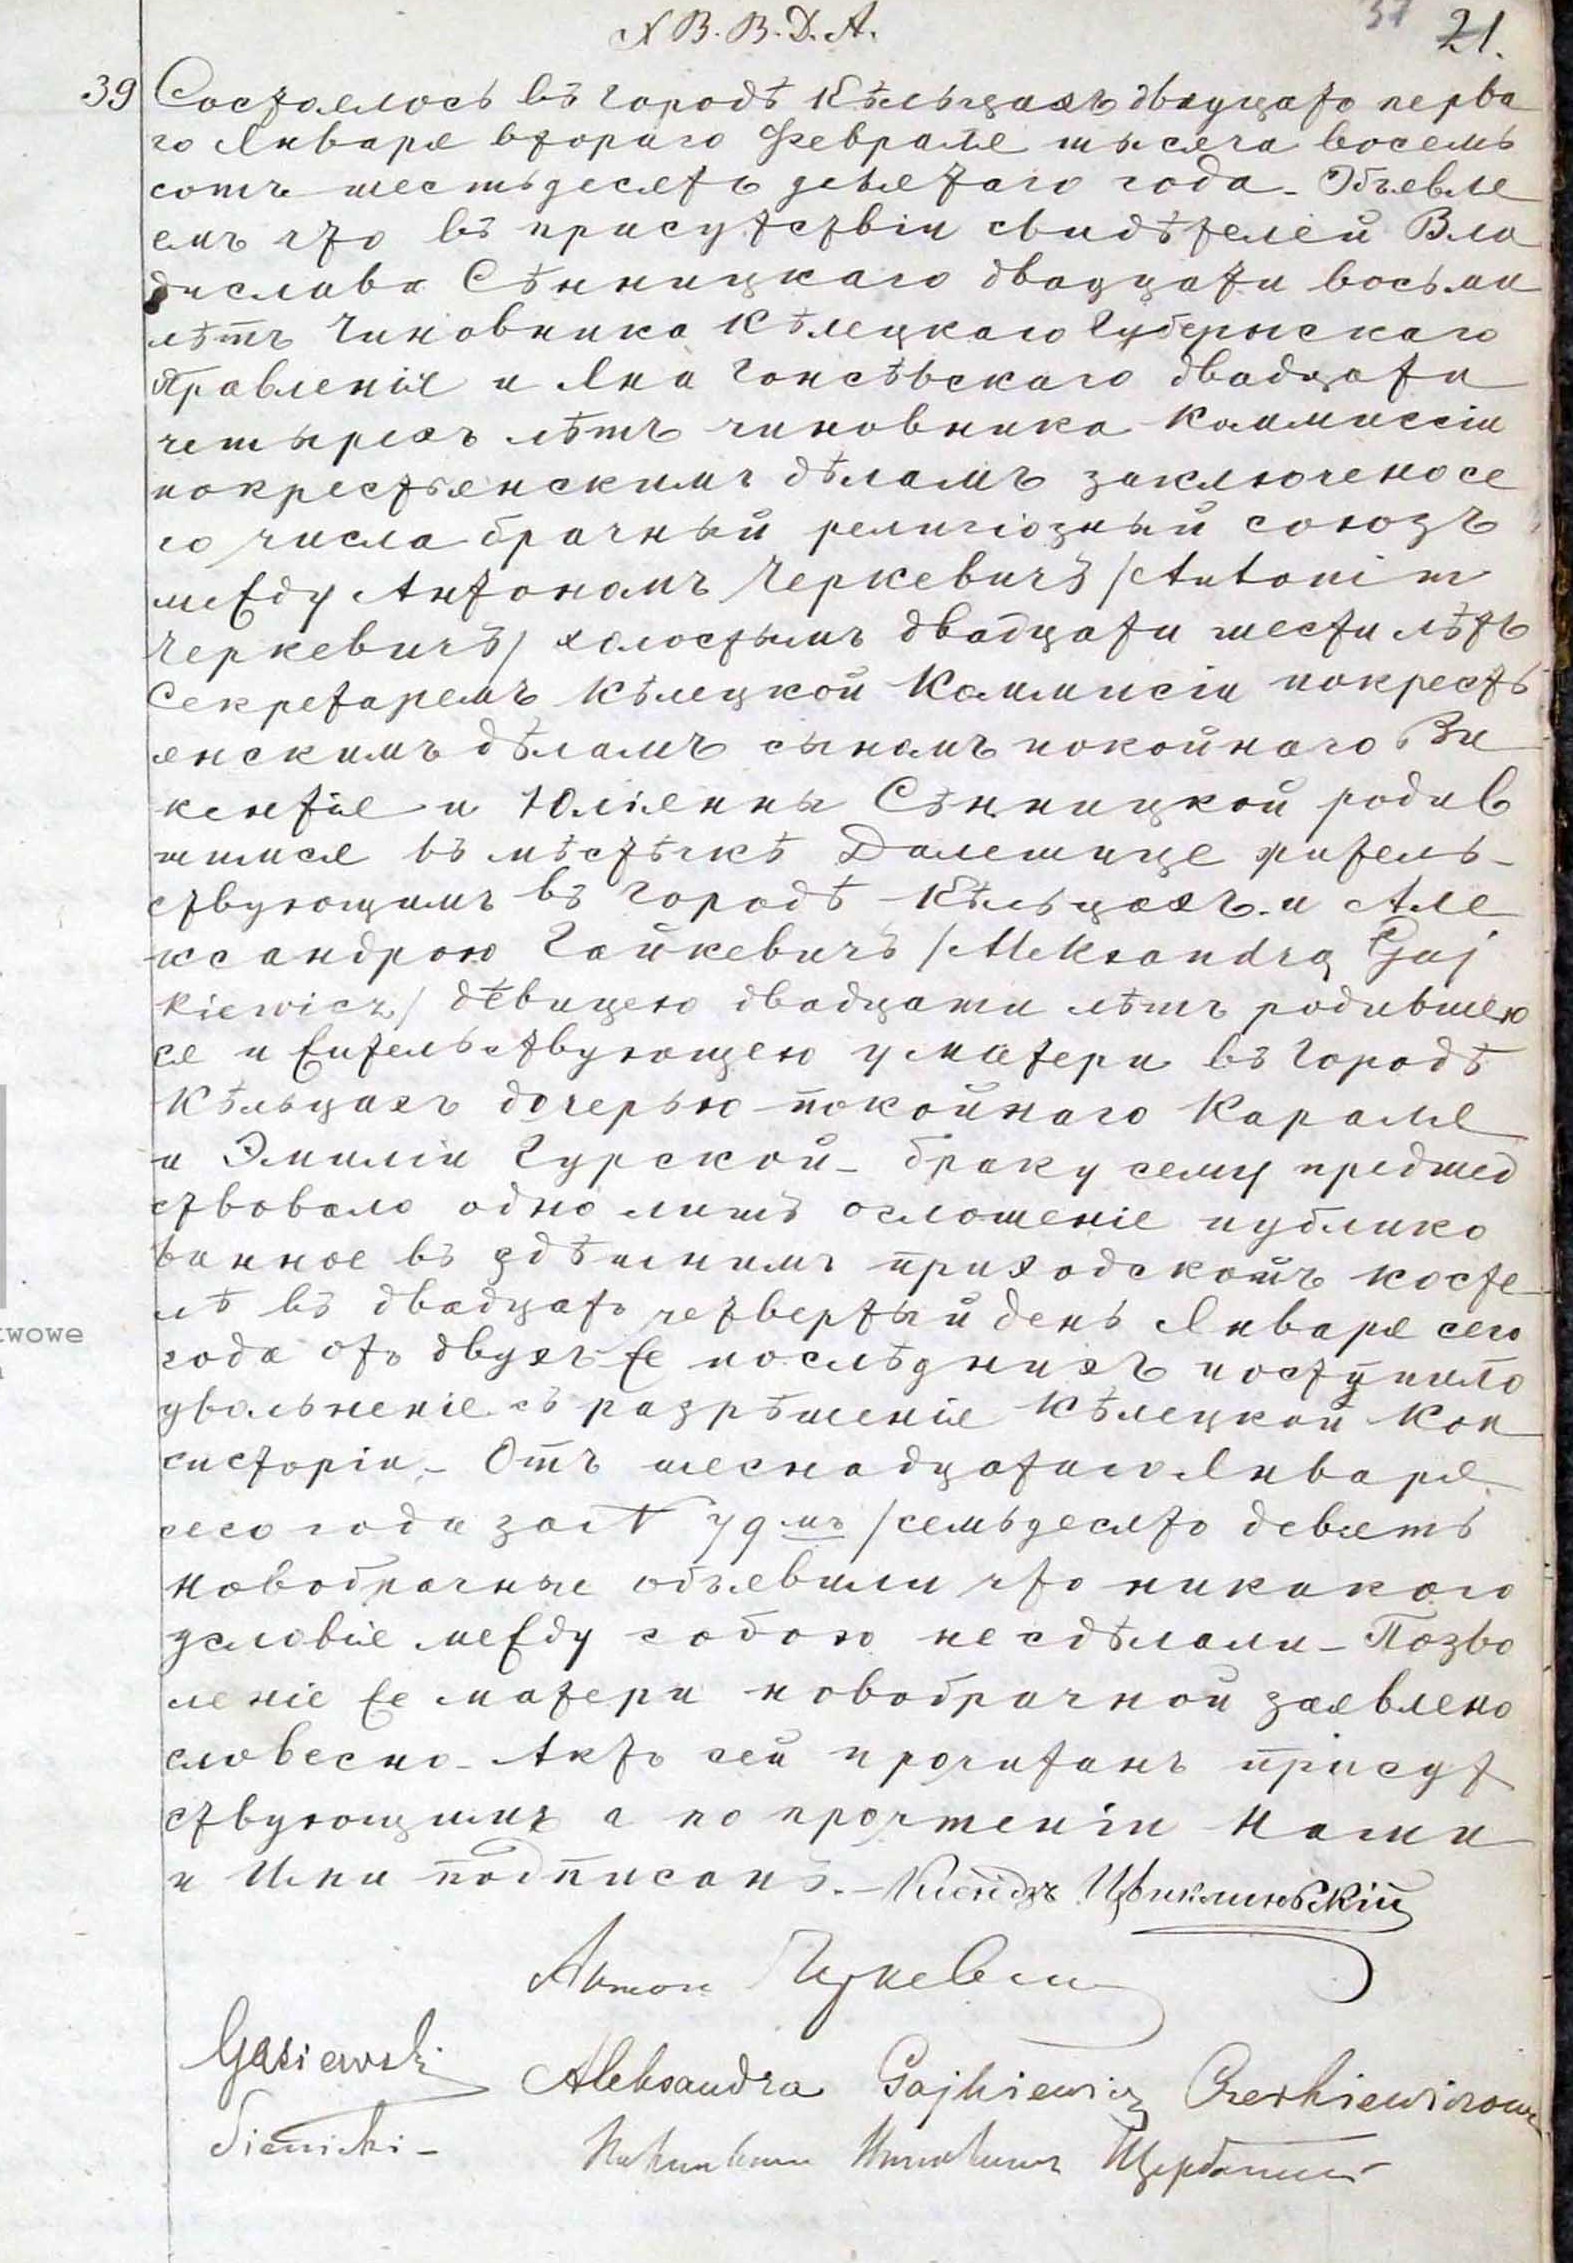 N B. B. D. A.
37 21.
39 Состоялось въ городѣ Кѣльцахъ двадцать перва
го Января втораго Февраля тысяча восемь
сотъ шестьдесятъ девятаго года – Объявля
емъ что въ присутствіи свидѣтелей Вла
дислава Сѣнницкаго двадцати восьми
лѣтъ Чиновника Кѣлецкаго Губернскаго
Правленія и Яна Гонсѣвскаго двадцати
четырехъ лѣтъ чиновника Коммиссіи
покрестьянскимъ дѣламъ заключено се
го числа брачный религіозный союзъ
между Антономъ Черкевичъ /Antonim
Черкевичъ/ холостымъ двадцати шести лѣтъ
Секретаремъ Кѣлецкой Коммисіи покресть
янскимъ дѣламъ сыномъ покойнаго Ви
кентія и Юліянны Сѣнницкой родив
шимся въ мѣстѣчкѣ Далешице житель–
ствующимъ въ городѣ Кѣльцахъ и Але
ксандрою Гайкевичъ /Aleksandrą Gaj
kiewicz/ дѣвицею двадцати лѣтъ родившею
ся и жительствующею у матери въ городѣ
Кѣльцахъ дочерью покойнаго Кароля
и Эмиліи Гурской – браку сему предшед
ствовало одно лишъ оглошеніе публико
ванное въ здѣшнимъ приходскомъ косте
лѣ въ двадцать четвертый день Января сего
года отъ двухъ же послѣднихъ поступило
увольненіе съ разрѣшенія Кѣлецкой Кон
систоріи – Отъ шеснадцатаго Января
сего года за N 79 мъ /семьдесятъ девять
новобрачные объявили что никакого
условія между собою не сдѣлали – Позво
леніе же матери новобрачной заявлено
словесно – Актъ сей прочитанъ присут
ствующимъ а по прочтеніи Нами
и Ими подписанъ. – Ксендзъ Цвиклинскій
Антон Черкевич
Gąsiewski
Aleksandra Gajkiewicz Czerkiewiczowa
Sienicki –
twowe